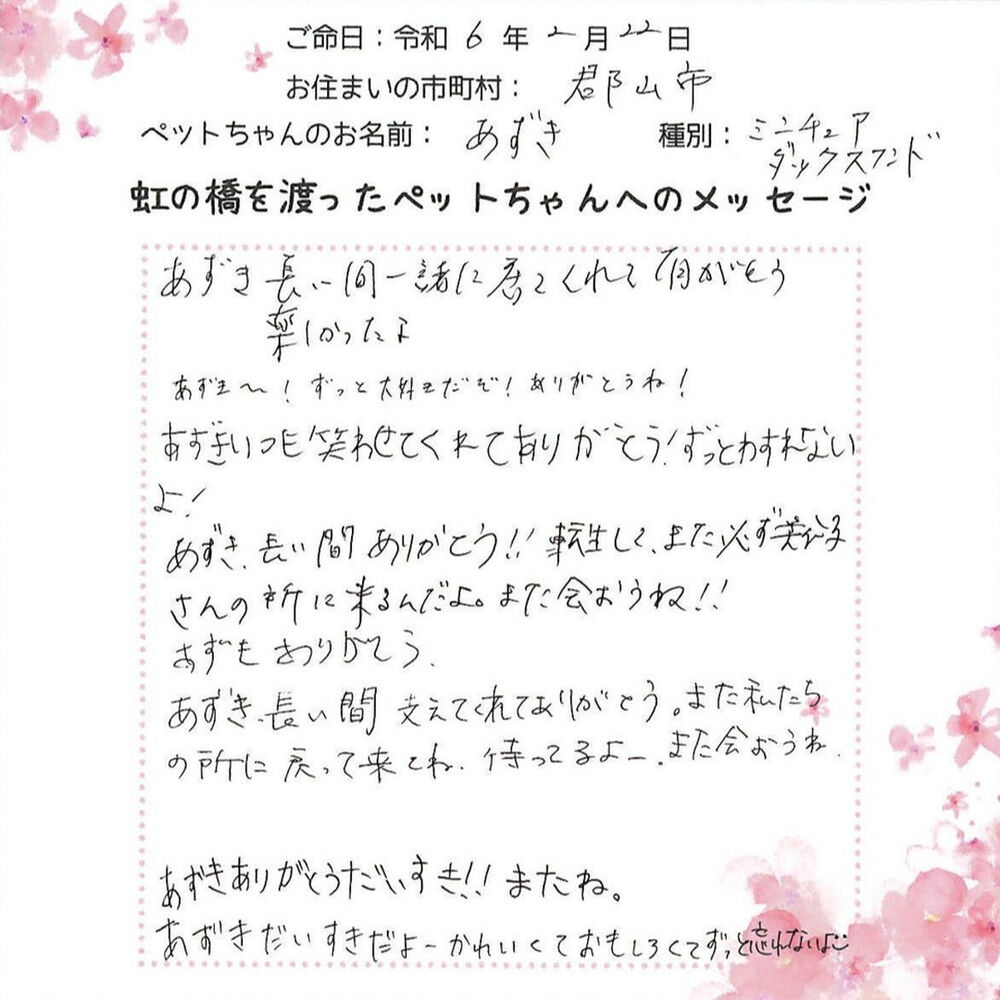 ご命日：令和 6 年 2 月 22 日
お住まいの市町村： 郡山市
ペットちゃんのお名前： あずき 種別： ミニチュア
ダックスフンド
虹の橋を渡ったペットちゃんへのメッセージ
あずき 長い間一緒に居てくれて有がとう
楽しかったよ
あずき〜！ずっと大好きだぞ！ありがとうね！
あずきいつも笑わせてくれてありがとう！ずっとわすれない
よ！
あずき、長い間ありがとう!!転生して、また必ず
さんの所に来るんだよ。また会おうね!!
あずき ありがとう、
あずき、長い間 支えてくれてありがとう。また私たち
の所に戻って来てね、待ってるよー、また会おうね、
あずきありがとうだいすき!!またね。
あずきだいすきだよーかわいくておもしろくてずっと忘れないよ